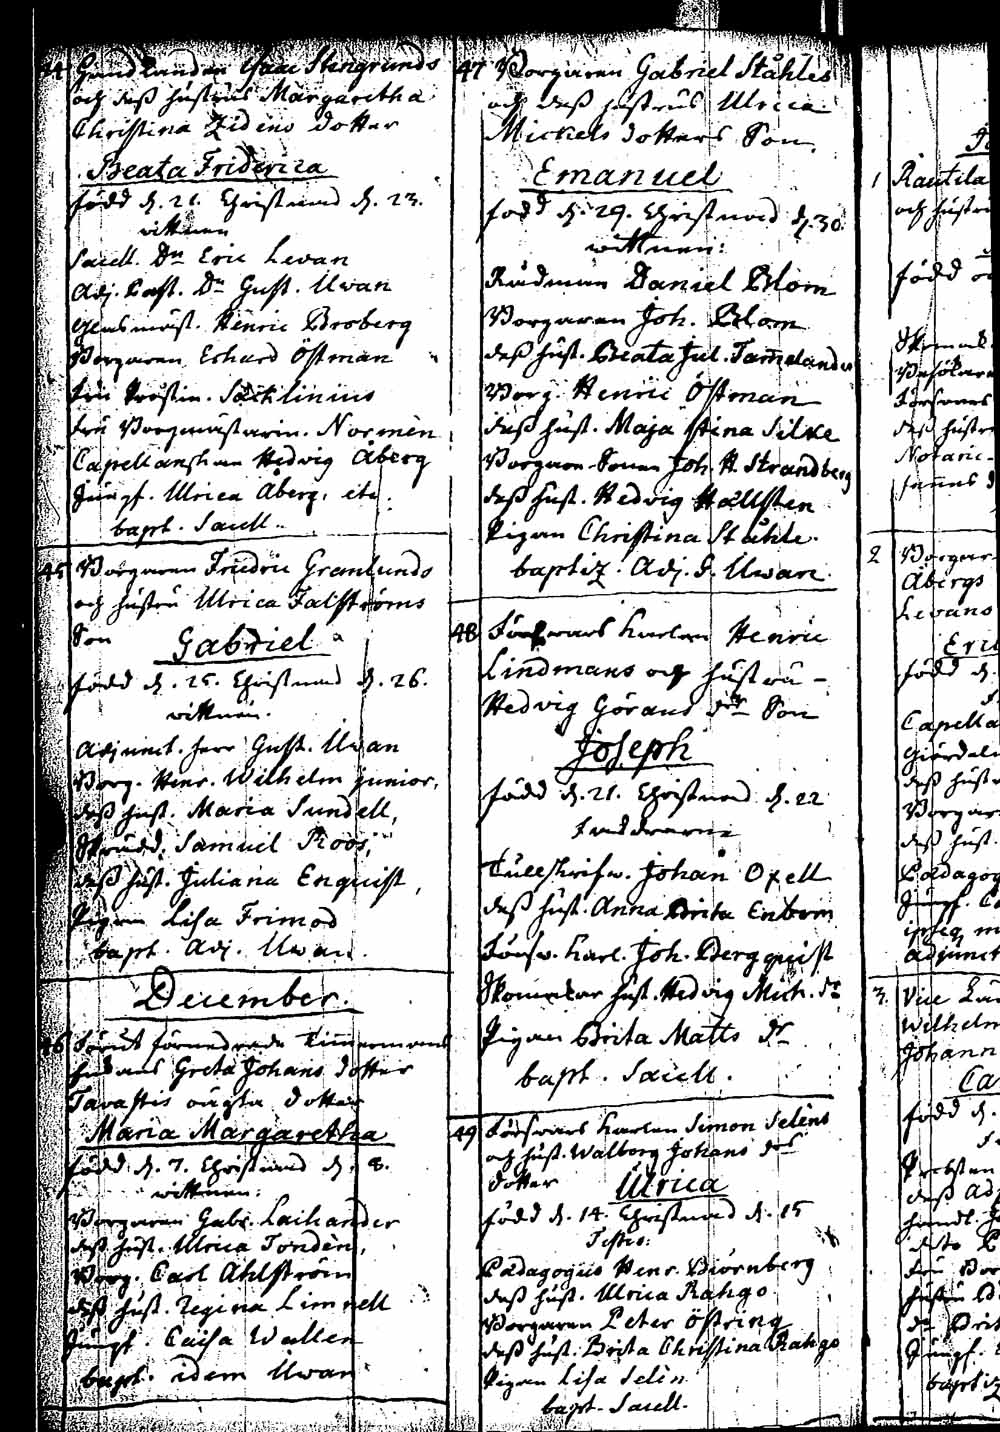 44. Handlanden Isaac Stengrunds
och dess hustrus Margaretha
Christina Zidens dotter
Beata Friderica
född d. 21. Christnad d. 23.
wittnen
Sacell. Dn Eric Levan
Adj. Past. Dn Gust. Uwan
Glasmäst. Henric Broberg
Borgaren Erhard Östman
Fru Prostin. Sacklinius
Fru Borgmästarin. Normén
Capellanskan Hedvig Åberg
Jungf. Ulrica Åberg, etc.
bapt. Sacell.
45 Borgaren Fridric Granlunds
och hustru Ulrica Falströms
Son Gabriel
född d. 25. Christnad d. 26.
wittnen.
Adjunct. herr Gust. Uwan
Borg. Henr. Wilhelm junior,
dess hust. Maria Sundell,
Skrädd. Samuel Roos,
dess hust. Juliana Enquist,
Pigan Lisa Frimod
bapt. Adj. Uwan.
December.
46 Förut förmedrade Timmermans
Greta Johans dotter
Tavastis oägta dotter
Maria Margaretha
född d. 7. Christnad d. 8.
wittnen:
Borgaren Gabr. Laihander
dess hust. Ulrica Tondén,
Borg. Carl Ahlström
dess hust. Regina Limnell
Jungf. Caisa Wallen
bapt. idem Uwan
47 Borgaren Gabriel Ståhles
och dess hustrus Ulrica
Mickels dotters Son.
Emanuel
född d. 29. Christnad d. 30.
wittnen:
Rådman Daniel Blom
Borgaren Joh. Blom
dess hust. Beata Jul. Tamelander
Borg. Henric Östman
dess hust. Maja Stina Silke
Borgare-Sonen Joh. H. Strandberg
dess hust. Hedvig Hällsten
Pigan Christina Ståhle.
baptiz. Adj. G. Uwan.
48 Försvars Karlen Henric
Lindmans och hustru
Hedvig Görans dr Son
Joseph
född d. 21. Christnad d. 22
Faddrarne
Tullskrifv. Johan Oxell
dess hust. Anna Brita Enbom
Försv. Karl. Joh. Bergquist
Skomakar hust. Hedvig Mich. dr
Pigan Brita Matts dr
bapt. Sacell.
49 Försvars Karlen Simon Seléns
och hust. Walborg Johans drs
dotter Ulrica
född d. 14. Christnad d. 15
Testes:
Pädagogus Henr. Biörnberg
dess hust. Ulrica Rahgo.
Borgaren Peter Östring
dess hust. Brita Christina Rahgo
Pigan Lisa Selin
bapt. Sacell.
1 Rautila
och hustru
född
2 Borgar
Åbergs
Levans
Eric
född d.
Capella
dess hustr
Borgar
dess hust.
Pädagog
Jungf.
adjunct
3. Vice
Wilhelm
Johann
Ca
född d.
Probsten
dess
Jungf.
baptiz